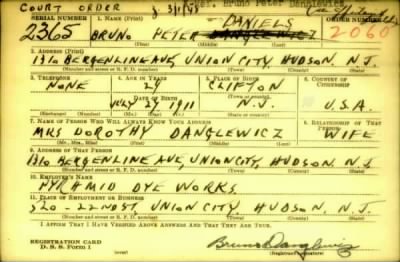 COURT ORDER 3/1/48 Bruno Peter Danglewicz
SERIAL NUMBER 1. NAME (Print) DANIELS ORDER NUMBER
2365 BRUNO PETER DANGLEWICZ 2060
2. ADDRESS (Print)
1310 BERGENLINE AVE, UNION CITY, HUDSON, N.J.
3. TELEPHONE 4. AGE IN YEARS 5. PLACE OF BIRTH 6. COUNTRY OF CITIZENSHIP
NONE 29 CLIFTON
DATE OF BIRTH
JULY 27 1911 N.J. U.S.A.
7. NAME OF PERSON WHO WILL ALWAYS KNOW YOUR ADDRESS 8. RELATIONSHIP OF THAT PERSON
MRS DOROTHY DANGLEWICZ WIFE
9. ADDRESS OF THAT PERSON
1310 BERGENLINE AVE, UNION CITY, HUDSON, N.J.
10. EMPLOYER'S NAME
PYRAMID DYE WORKS
11. PLACE OF EMPLOYMENT OR BUSINESS
520-22ND ST, UNION CITY HUDSON. N.J.
I AFFIRM THAT I HAVE VERIFIED ABOVE ANSWERS AND THAT THEY ARE TRUE.
REGISTRATION CARD
D. S. S. Form 1
Bruno Danglewicz